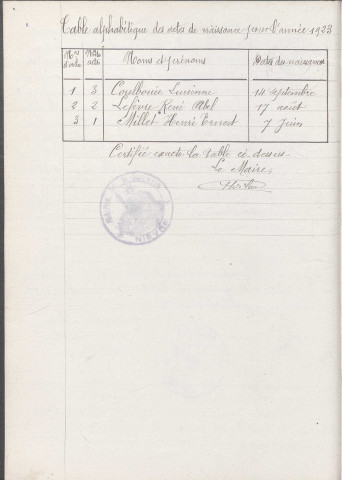 Table alphabétique des actes de naissance pour l'année 1923
Nos d'ordre Nos des actes Noms et prénoms Dates des naissances
1 3 Lucienne 14 septembre
2 2 Lefèvre René Abel 17 août
3 1 Millet Henri Ernest 7 Juin
Certifié exacte la table ci-dessus
Le Maire,
MAIRIE NIÈVRE